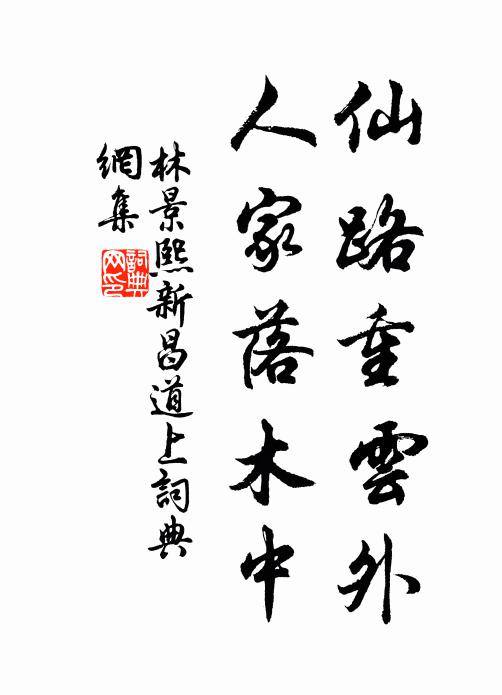 仙路重雲外
人家落木中
林景熙新昌道上詞典
網集
詞典
网印